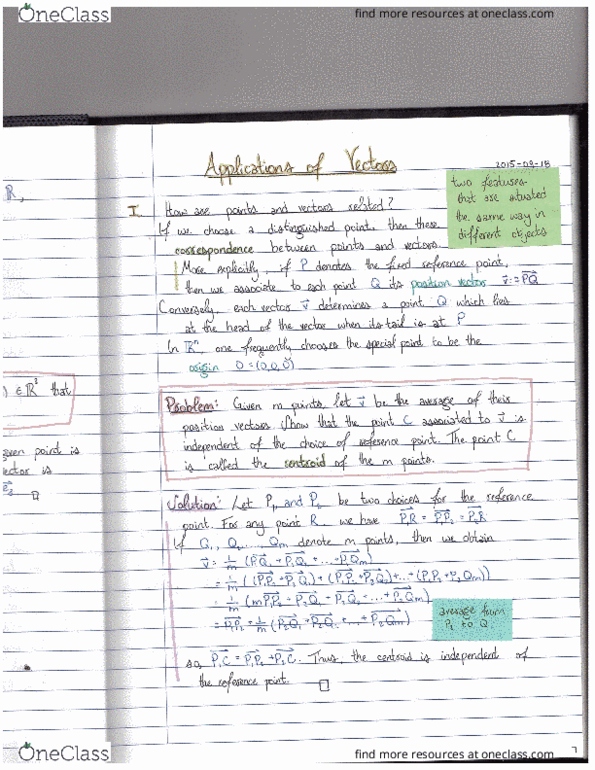 OneClass
find more resources at oneclass.com
Applications of Vectors
2015-09-18
two features
that are situated
the same way in
different objects
I. How are points and vectors related?
If we choose a distinguished point, then there
correspondence between points and vectors.
More explicitly, if P denotes the fixed reference point,
then we associate to each point Q its position vector v⃗ := PQ⃗
Conversely, each vector v⃗ determines a point Q which lies
at the head of the vector when its tail is at P
In ℝⁿ one frequently chooses the special point to be the
origin O = (0,0,0)
ℝ,
) ∈ ℝ² that
point is
is
Problem: Given m points, let v⃗ be the average of their
position vectors. Show that the point C associated to v⃗ is
independent of the choice of reference point. The point C
is called the centroid of the m points.
Solution: Let P₁, and P₂ be two choices for the reference
point. For any point R, we have P₁R⃗ = P₁P₂⃗ = P₂R⃗
If Q₁, Q₂, ... Qm denote m points, then we obtain
v⃗ = 1/m (P₁Q₁⃗ + P₁Q₂⃗ + ... + P₁Qm⃗)
= 1/m ((P₁P₂⃗ + P₂Q₁⃗) + (P₁P₂⃗ + P₂Q₂⃗) + ... + (P₁P₂⃗ + P₂Qm⃗))
= 1/m (mP₁P₂⃗ + P₂Q₁⃗ + P₂Q₂⃗ + ... + P₂Qm⃗)
= P₁P₂⃗ + 1/m (P₂Q₁⃗ + P₂Q₂⃗ + ... + P₂Qm⃗)
average from
P₂ to Q
so, P₁C⃗ = P₁P₂⃗ + P₂C⃗. Thus, the centroid is independent of
the reference point. □
7
OneClass
find more resources at oneclass.com